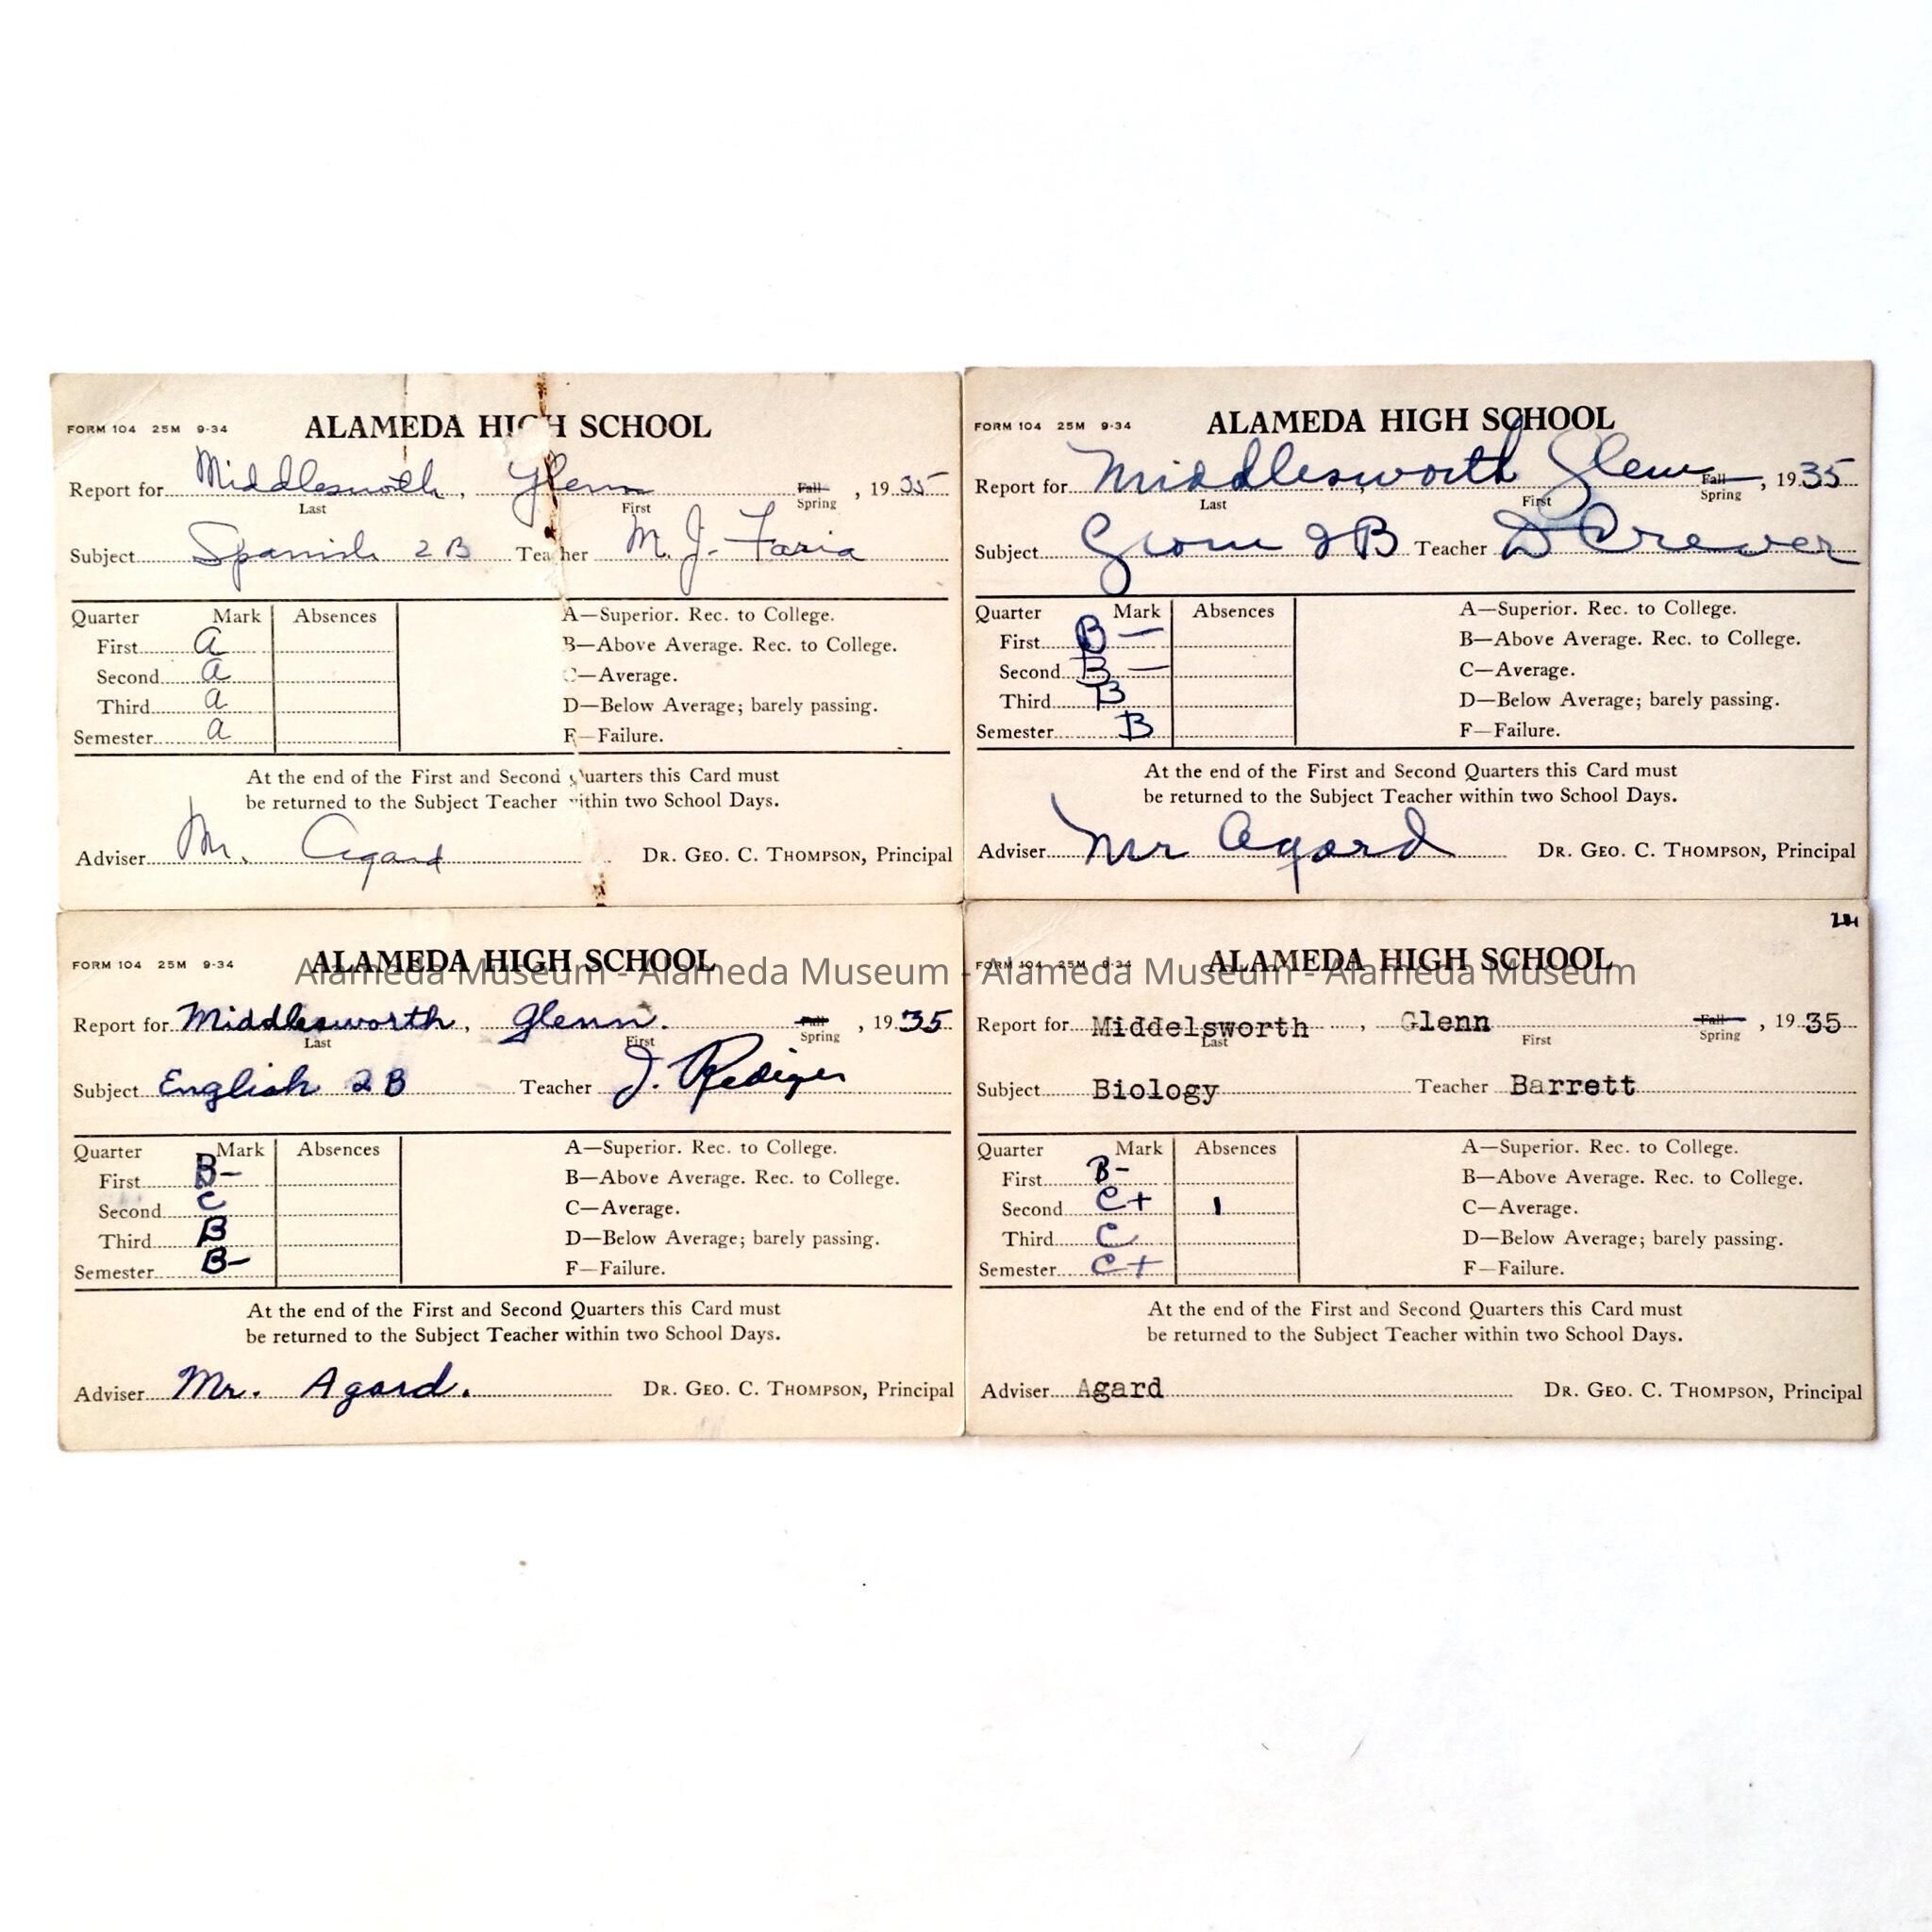 FORM 104 25M 9-34 ALAMEDA HIGH SCHOOL
Report for Middlesworth, Glenn Fall Spring, 1935
Last First
Subject Spanish 2B Teacher M. J. Faria
Quarter Mark Absences
First A
Second A
Third A
Semester A
A—Superior. Rec. to College.
B—Above Average. Rec. to College.
C—Average.
D—Below Average; barely passing.
F—Failure.
At the end of the First and Second Quarters this Card must
be returned to the Subject Teacher within two School Days.
Adviser Mr. Agard DR. GEO. C. THOMPSON, Principal
FORM 104 25M 9-34 ALAMEDA HIGH SCHOOL
Report for Middlesworth Glenn Fall Spring, 1935
Last First
Subject 2B Teacher
Quarter Mark Absences
First B-
Second B-
Third B
Semester B
A—Superior. Rec. to College.
B—Above Average. Rec. to College.
C—Average.
D—Below Average; barely passing.
F—Failure.
At the end of the First and Second Quarters this Card must
be returned to the Subject Teacher within two School Days.
Adviser Mr Agard DR. GEO. C. THOMPSON, Principal
FORM 104 25M 9-34 ALAMEDA HIGH SCHOOL
Report for Middlesworth, Glenn. Fall Spring, 1935
Last First
Subject English 2B Teacher J. Rediger
Quarter Mark Absences
First B-
Second C
Third B
Semester B-
A—Superior. Rec. to College.
B—Above Average. Rec. to College.
C—Average.
D—Below Average; barely passing.
F—Failure.
At the end of the First and Second Quarters this Card must
be returned to the Subject Teacher within two School Days.
Adviser Mr. Agard. DR. GEO. C. THOMPSON, Principal
FORM 104 25M 9-34 ALAMEDA HIGH SCHOOL
Report for Middelsworth, Glenn Fall Spring, 1935
Last First
Subject Biology Teacher Barrett
Quarter Mark Absences
First B-
Second C+ 1
Third C
Semester C+
A—Superior. Rec. to College.
B—Above Average. Rec. to College.
C—Average.
D—Below Average; barely passing.
F—Failure.
At the end of the First and Second Quarters this Card must
be returned to the Subject Teacher within two School Days.
Adviser Agard DR. GEO. C. THOMPSON, Principal
Alameda Museum - Alameda Museum - Alameda Museum - Alameda Museum